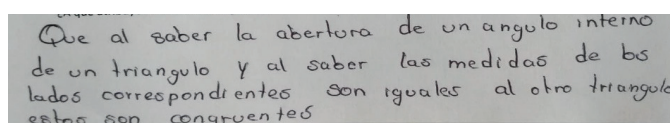 Que al saber la abertura de un angulo interno
de un triangulo y al saber las medidas de los
lados correspondientes son iguales al otro triangulo
estos son congruentes